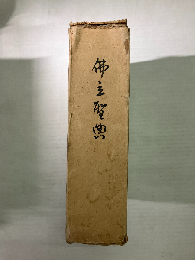 佛立聖典